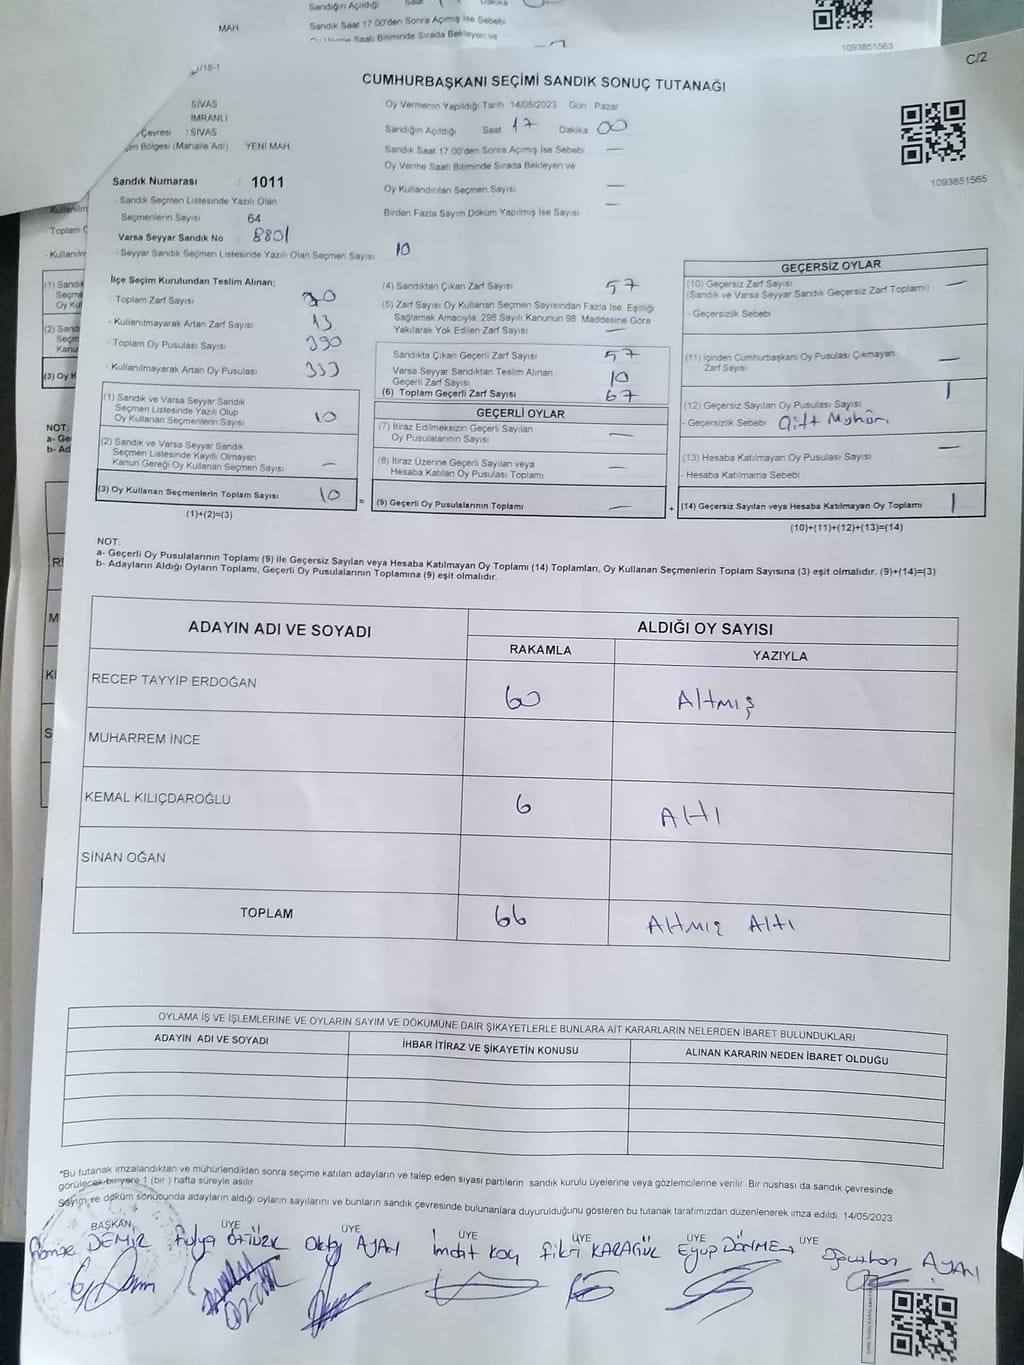 Sandığın Açıldığı
MAH.
Sandık Saat 17:00'den Sonra Açımış İse Sebebi
Oy Verme Saati Bitiminde Sırada Bekleyen ve
1093851563
C/2
/18-1
CUMHURBAŞKANI SEÇİMİ SANDIK SONUÇ TUTANAĞI
SİVAS
İMRANLI
Çevresi : SİVAS
Bölgesi (Mahalle Adı) YENİ MAH.
Sandık Numarası : 1011
- Sandık Seçmen Listesinde Yazılı Olan
Seçmenlerin Sayısı : 64
Varsa Seyyar Sandık No : 8801
- Seyyar Sandık Seçmen Listesinde Yazılı Olan Seçmen Sayısı : 10
Oy Vermenin Yapıldığı Tarih 14/05/2023 Gün Pazar
Sandığın Açıldığı Saat 17 Dakika 00
Sandık Saat 17:00'den Sonra Açımış İse Sebebi —
Oy Verme Saati Bitiminde Sırada Bekleyen ve
Oy Kullandırılan Seçmen Sayısı —
Birden Fazla Sayım Döküm Yapılmış İse Sayısı —
1093851565
İlçe Seçim Kurulundan Teslim Alınan;
- Toplam Zarf Sayısı
- Kullanılmayarak Artan Zarf Sayısı 13
- Toplam Oy Pusulası Sayısı 390
- Kullanılmayarak Artan Oy Pusulası 333
(1) Sandık ve Varsa Seyyar Sandık
Seçmen Listesinde Yazılı Olup
Oy Kullanan Seçmenlerin Sayısı 10
(2) Sandık ve Varsa Seyyar Sandık
Seçmen Listesinde Kayıtlı Olmayan
Kanun Gereği Oy Kullanan Seçmen Sayısı —
(3) Oy Kullanan Seçmenlerin Toplam Sayısı 10
(1)+(2)=(3)
=
(4) Sandıktan Çıkan Zarf Sayısı 57
(5) Zarf Sayısı Oy Kullanan Seçmen Sayısından Fazla İse, Eşitliği
Sağlamak Amacıyla, 298 Sayılı Kanunun 98. Maddesine Göre
Yakılarak Yok Edilen Zarf Sayısı —
Sandıkta Çıkan Geçerli Zarf Sayısı 57
Varsa Seyyar Sandıktan Teslim Alınan
Geçerli Zarf Sayısı 10
(6) Toplam Geçerli Zarf Sayısı 67
GEÇERLİ OYLAR
(7) İtiraz Edilmeksizin Geçerli Sayılan
Oy Pusulalarının Sayısı —
(8) İtiraz Üzerine Geçerli Sayılan veya
Hesaba Katılan Oy Pusulası Toplamı —
(9) Geçerli Oy Pusulalarının Toplamı —
+
GEÇERSİZ OYLAR
(10) Geçersiz Zarf Sayısı —
(Sandık ve Varsa Seyyar Sandık Geçersiz Zarf Toplamı)
- Geçersizlik Sebebi
(11) İçinden Cumhurbaşkanı Oy Pusulası Çıkmayan
Zarf Sayısı —
(12) Geçersiz Sayılan Oy Pusulası Sayısı 1
- Geçersizlik Sebebi Çift Mühür
(13) Hesaba Katılmayan Oy Pusulası Sayısı —
- Hesaba Katılmama Sebebi
(14) Geçersiz Sayılan veya Hesaba Katılmayan Oy Toplamı 1
(10)+(11)+(12)+(13)=(14)
NOT:
a- Geçerli Oy Pusulalarının Toplamı (9) ile Geçersiz Sayılan veya Hesaba Katılmayan Oy Toplamı (14) Toplamları, Oy Kullanan Seçmenlerin Toplam Sayısına (3) eşit olmalıdır. (9)+(14)=(3)
b- Adayların Aldığı Oyların Toplamı, Geçerli Oy Pusulalarının Toplamına (9) eşit olmalıdır.
ADAYIN ADI VE SOYADI
ALDIĞI OY SAYISI
RAKAMLA YAZIYLA
RECEP TAYYİP ERDOĞAN 60 Altmış
MUHARREM İNCE
KEMAL KILIÇDAROĞLU 6 Altı
SİNAN OĞAN
TOPLAM 66 Altmış Altı
OYLAMA İŞ VE İŞLEMLERİNE VE OYLARIN SAYIM VE DÖKÜMÜNE DAİR ŞİKAYETLERLE BUNLARA AİT KARARLARIN NELERDEN İBARET BULUNDUKLARI
ADAYIN ADI VE SOYADI İHBAR İTİRAZ VE ŞİKAYETİN KONUSU ALINAN KARARIN NEDEN İBARET OLDUĞU
*Bu tutanak imzalandıktan ve mühürlendikten sonra seçime katılan adayların ve talep eden siyasi partilerin sandık kurulu üyelerine veya gözlemcilerine verilir. Bir nüshası da sandık çevresinde
görülecek bir yere 1 (bir ) hafta süreyle asılır.
Sayım ve döküm sonucunda adayların aldığı oyların sayılarını ve bunların sandık çevresinde bulunanlara duyurulduğunu gösteren bu tutanak tarafımızdan düzenlenerek imza edildi. 14/05/2023
BAŞKAN ÜYE ÜYE ÜYE ÜYE ÜYE ÜYE
DEMİR Fulya ÖZTÜRK Oktay AYAN İmdat Koç Fikri KARAGÜL Eyüp DÖNMEZ Oğuzhan AYAN